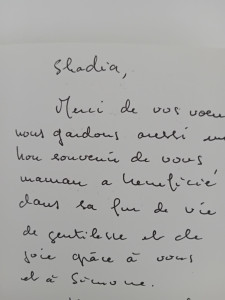 Ghadia,
Merci de vos voeu
nous gardons aussi un
bon souvenir de vous
maman a beneficié
dans sa fin de vie
de gentillesse et de
joie grâce à vous
et à Simone.